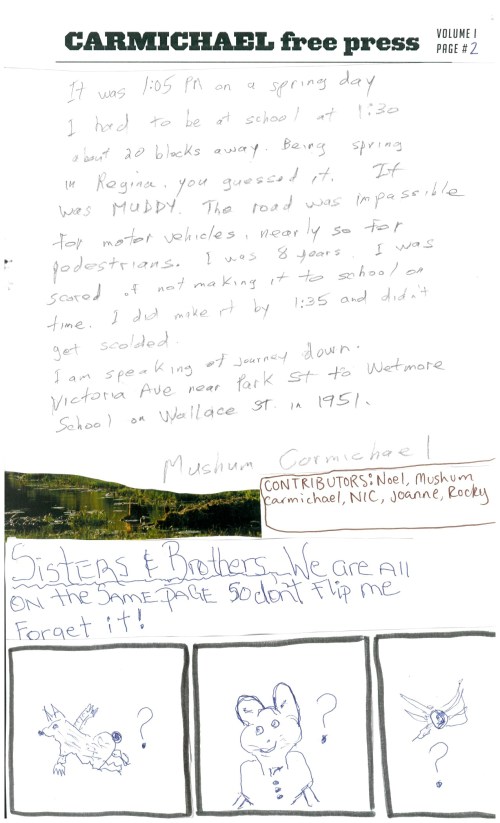 CARMICHAEL free press
VOLUME 1
PAGE #2
It was 1:05 PM on a spring day
I had to be at school at 1:30
about 20 blocks away. Being spring
in Regina, you guessed it. It
was MUDDY. The road was impassible
for motor vehicles, nearly so for
pedestrians. I was 8 years. I was
scared of not making it to school on
time. I did make it by 1:35 and didn't
get scolded.
I am speaking of journey down.
Victoria Ave near Park St to Wetmore
School on Wallace St. in 1951.
Mushum Carmichael
CONTRIBUTORS: Noel, Mushum
Carmichael, NIC, Joanne, Rocky
SISTERS & Brothers, We are All
ON the SAME PAGE SO don't Flip me
Forget it!
?
?
?